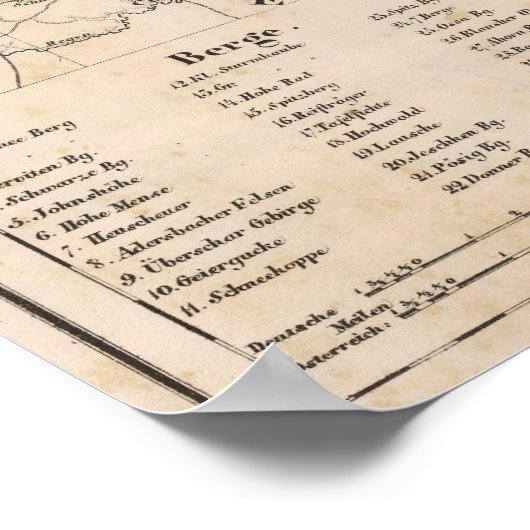 Berge.
nee Berg
rniten Bg.
Schwarze Bg.
5. Johnshöhe
6. Hohe Mense
7. Heuscheuer
8. Adersbacher Felsen
9. Überschar Gebirge
10. Geiergucke
11. Schneekoppe
12. Kl. Sturmhaube
13. Gr
14. Hohe Rad
15. Spitzberg
16. Reifträger
17. Tafelfichte
18. Hochwald
19. Lausche
20. Jeschken Bg.
21. Pösig Bg.
22. Donner B
23. Spitz Bg
Deutsche Meilen
sterreich: